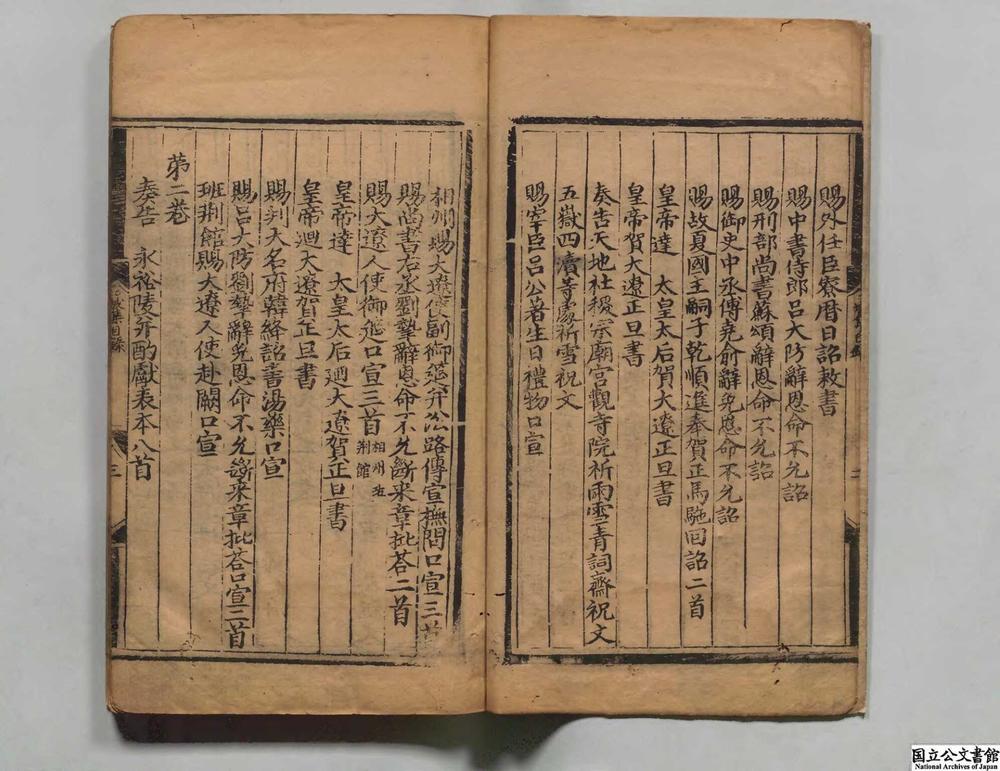 賜外任臣寮曆日詔敕書
賜中書侍郎呂大防辭恩命不允詔
賜刑部尚書蘇頌辭恩命不允詔
賜御史中丞傅堯俞辭免恩命不允詔
賜故夏國王嗣子乾順進奉賀正馬駞回詔二首
皇帝達　太皇太后賀大遼正旦書
皇帝賀大遼正旦書
奏告天地社稷宗廟宮觀寺院祈雨雪青詞齋祝文
五嶽四瀆等處祈雪祝文
賜宰臣呂公著生日禮物口宣
相州賜大遼使副御筵并沿路傳宣撫問口宣三首
賜尚書右丞劉摯辭恩命不允斷来章批荅二首
賜大遼人使御筵口宣三首 相州 班荆館
皇帝達　太皇太后廻大遼賀正旦書
皇帝廻大遼賀正旦書
賜判大名府韓絳詔書湯藥口宣
賜呂大防劉摯辭免恩命不允斷来章批荅口宣三首
班荆館賜大遼人使赴闕口宣
第二卷
奏告　永裕陵并酌獻表本八首
二
三
国立公文書館
National Archives of Japan